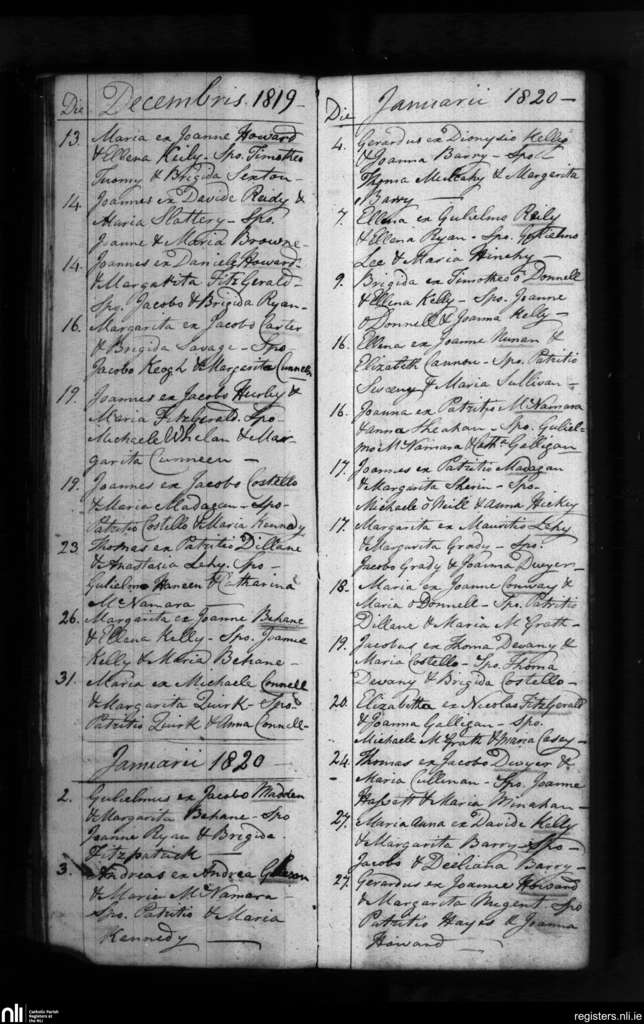 Die Decembris 1819
13. Maria ex Joanne Howard
& Ellena Keily - Spo. Timotheo
Tuomy & Brigida Sexton -
14. Joannes ex Davide Reidy &
Maria Slattery - Spo.
Joanne & Maria Browne -
14. Joannes ex Daniele Howard
& Margarita FitzGerald -
Spo. Jacobo & Brigida Ryan -
16. Margarita ex Jacobo Carter
& Brigida Savage - Spo
Jacobo Keogh & Margarita Cunneen
19. Joannes ex Jacobo Hurly &
Maria Fitzgerald. Spo -
Michaele Whelan & Mar-
garita Cunneen -
19. Joannes ex Jacobo Costello
& Maria Madagan - Spo -
Patritio Costello & Maria Kennedy
23. Thomas ex Patritio Dillane
& Anastasia Lehy. Spo -
Gulielmo & Catharina
McNamara
26. Margarita ex Joanne Behane
& Ellena Kelly - Spo. Joanne
Kelly & Maria Behane -
31. Maria ex Michaele Connell
& Margarita Quirk - Spo.
Patritio Quirk & Anna Connell -
Januarii 1820
2. Gulielmus ex Jacobo Madden
& Margarita Behane - Spo
Joanne Ryan & Brigida
Fitzpatrick -
3. Andreas ex Andrea
& Maria McNamara -
Spo. Patritio & Maria
Kennedy -
Die Januarii 1820 -
4. Gerardus ex Dionysio Kelly
& Joanna Barry - Spo
Thoma Mulcahy & Margarita
Barry -
7. Ellena ex Gulielmo Reily
& Ellena Ryan - Spo. Gulielmo
Lee & Maria Hinchy -
9. Brigida ex Timotheo O'Donnell
& Ellena Kelly - Spo. Joanne
O'Donnell & Joanna Kelly -
16. Ellena ex Joanne Nunan &
Elizabeth Cannon - Spo. Patritio
Sweeny & Maria Sullivan -
16. Joanna ex Patritio McNamara
& Anna Sheahan - Spo. Guliel-
mo McNamara & Cath. Galligan
17. Joannes ex Patritio Madagan
& Margarita Sherin - Spo -
Michaele O'Neill & Anna Hickey
17. Margarita ex Mauritio Lehy
& Margarita Grady - Spo.
Jacobo Grady & Joanna Dwyer -
18. Maria ex Joanne Conway &
Maria O'Donnell - Spo. Patritio
Dillane & Maria McGrath -
19. Jacobus ex Thoma Devany &
Maria Costello - Spo. Thoma
Devany & Brigida Costello -
20. Elizabetha ex Nicolao FitzGerald
& Joanna Galligan - Spo.
Michaele McGrath & Maria Casey -
24. Thomas ex Jacobo Dwyer &
Maria Cullinan - Spo. Joanne
Hassett & Maria Minahan -
27. Maria Anna ex Davide Kelly
& Margarita Barry - Spo -
Jacobo & Deeliana Barry -
27. Gerardus ex Joanne Howard
& Margarita Nugent. Spo
Patritio Hayes & Joanna
Howard -
nli Catholic Parish
Registers at
the NLI
registers.nli.ie